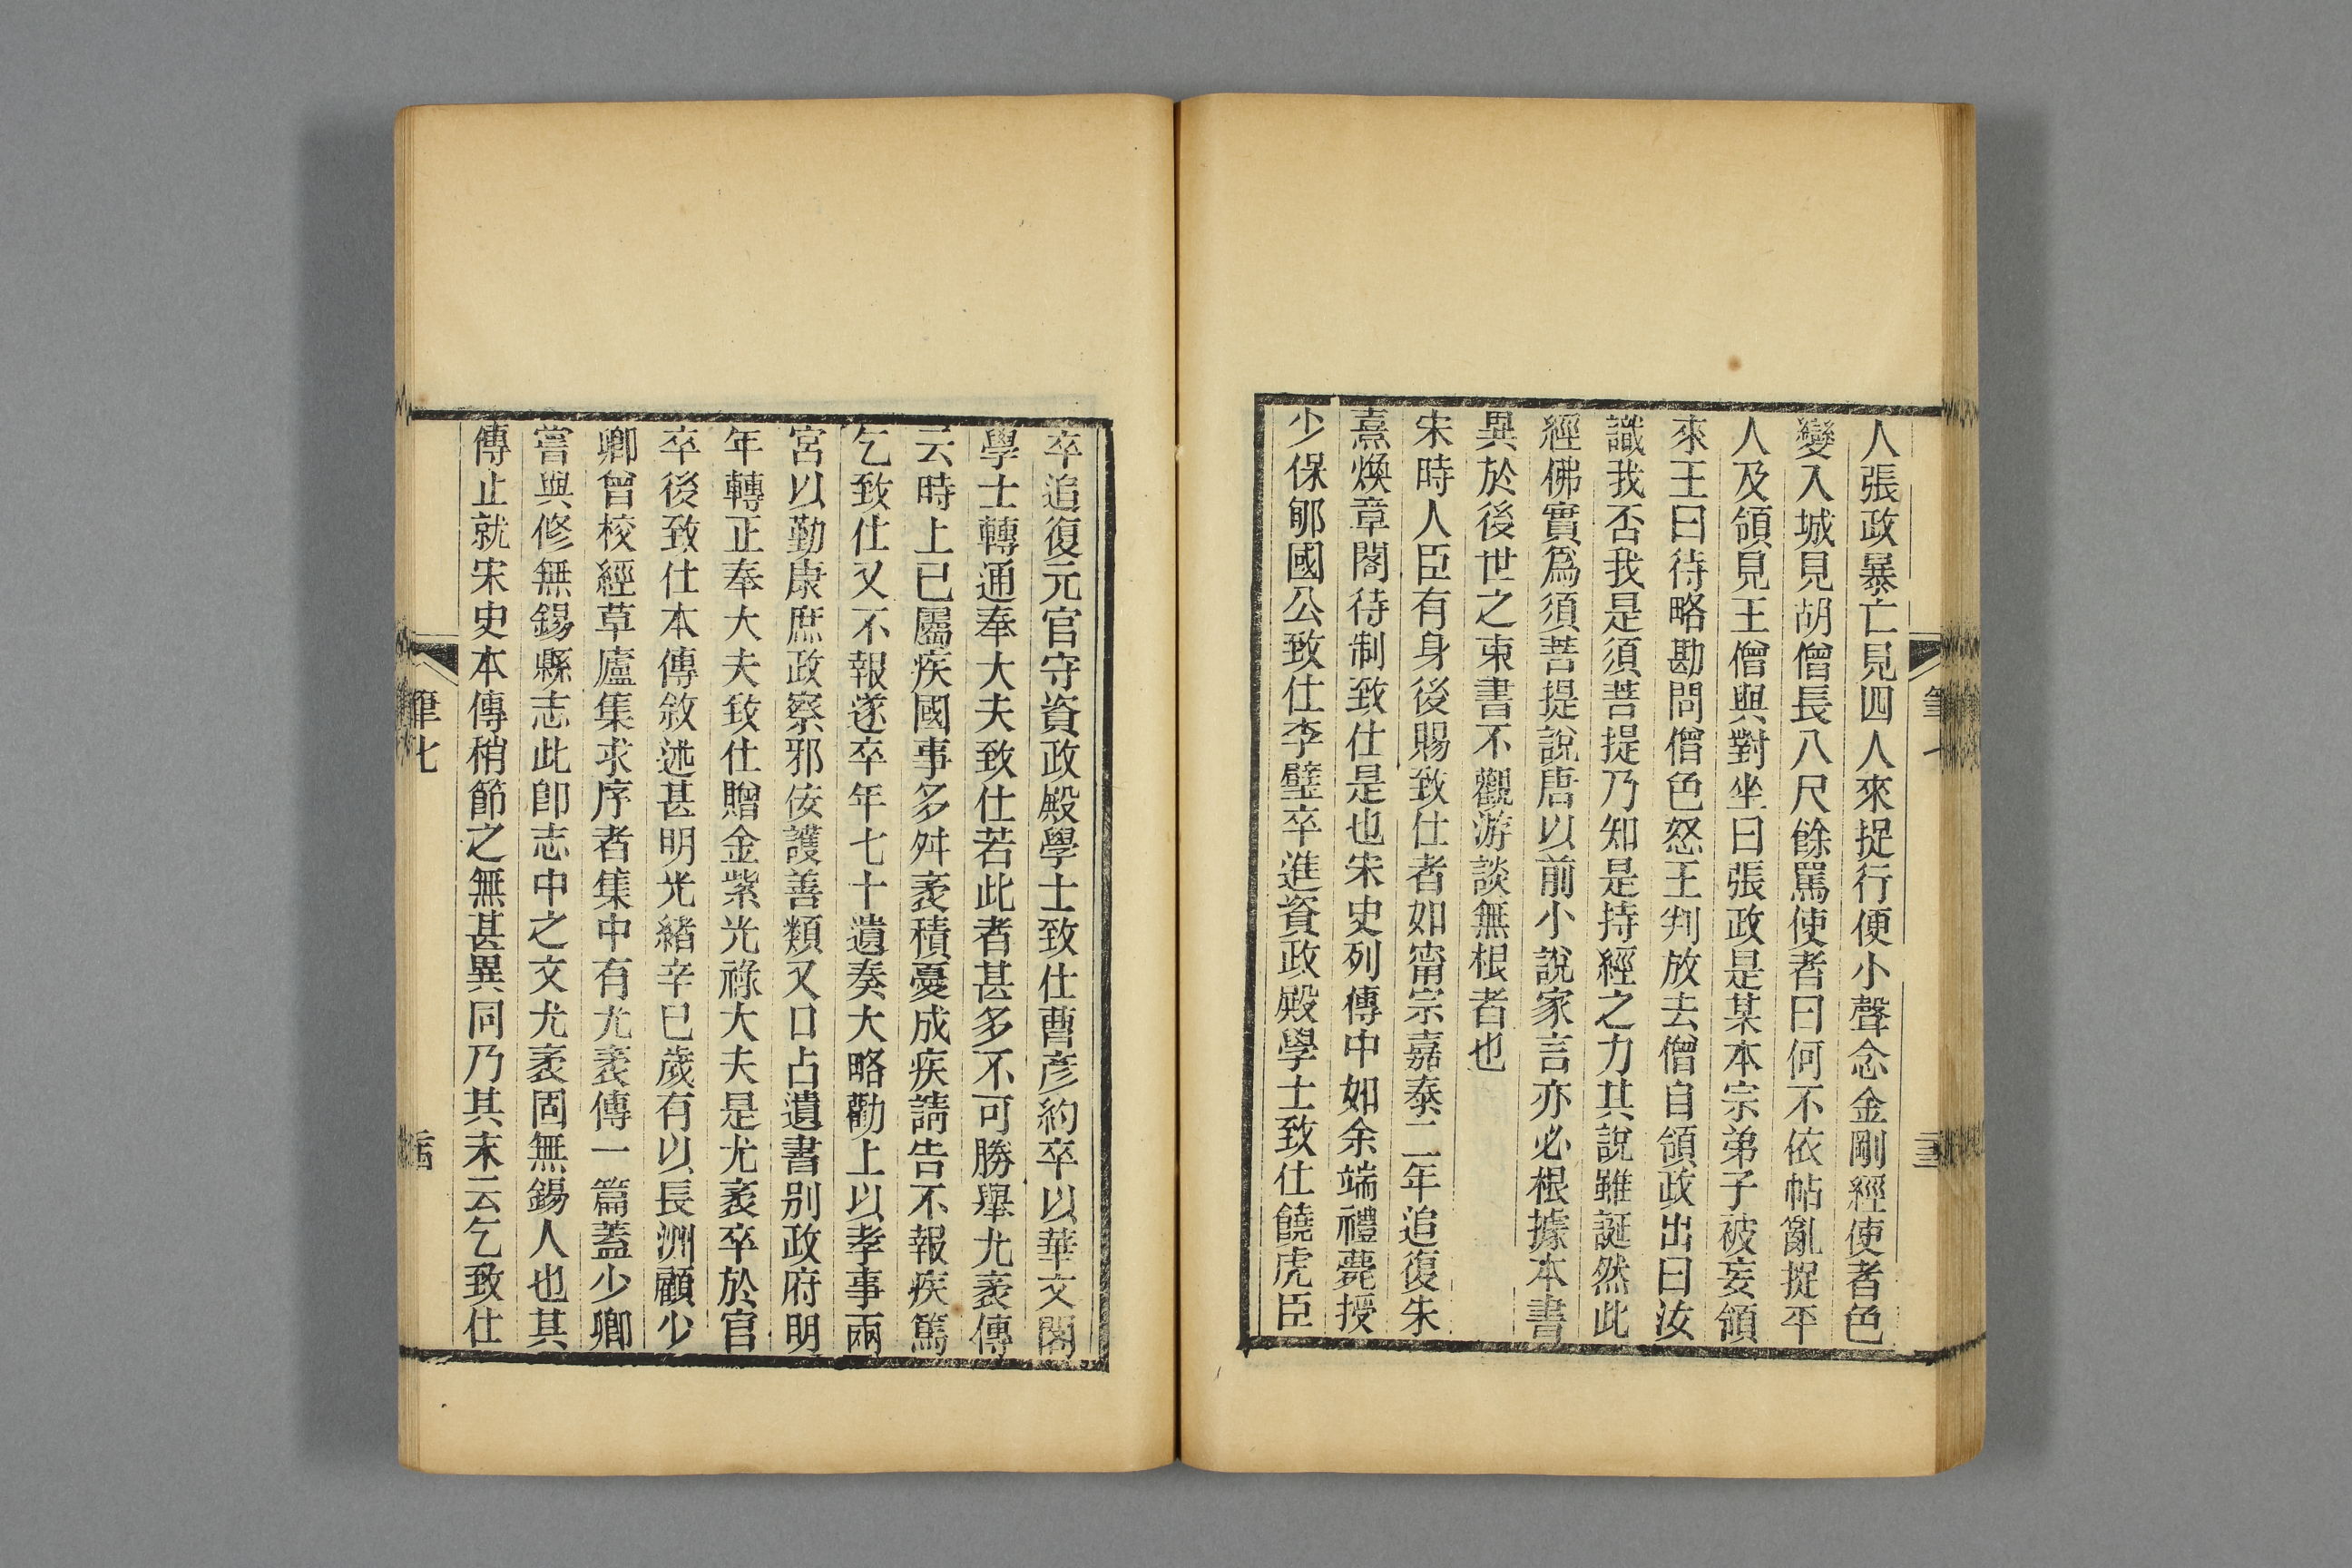 人張政暴亡見四人來捉行便小聲念金剛經使者色
變入城見胡僧長八尺餘罵使者曰何不依帖亂捉平
人及領見王僧與對坐曰張政是某本宗弟子被妄領
來王曰待略勘問僧色怒王判放去僧自領政出曰汝
識我否我是須菩提乃知是持經之力其說雖誕然此
經佛實爲須菩提說唐以前小說家言亦必根據本書
異於後世之束書不觀游談無根者也
宋時人臣有身後賜致仕者如甯宗嘉泰二年追復朱
熹煥章閣待制致仕是也宋史列傳中如余端禮薨授
少保郇國公致仕李壁卒進資政殿學士致仕饒虎臣
卒追復元官守資政殿學士致仕曹彦約卒以華文閣
學士轉通奉大夫致仕若此者甚多不可勝舉尤袤傳
云時上已屬疾國事多舛袤積憂成疾請告不報疾篤
乞致仕又不報遂卒年七十遺奏大略勸上以孝事兩
宮以勤康庶政察邪佞護善類又口占遺書別政府明
年轉正奉大夫致仕贈金紫光祿大夫是尤袤卒於官
卒後致仕本傳敘述甚明光緒辛巳歲有以長洲顧少
卿曾校經草廬集求序者集中有尤袤傳一篇蓋少卿
嘗與修無錫縣志此卽志中之文尤袤固無錫人也其
傳止就宋史本傳稍節之無甚異同乃其末云乞致仕
筆七